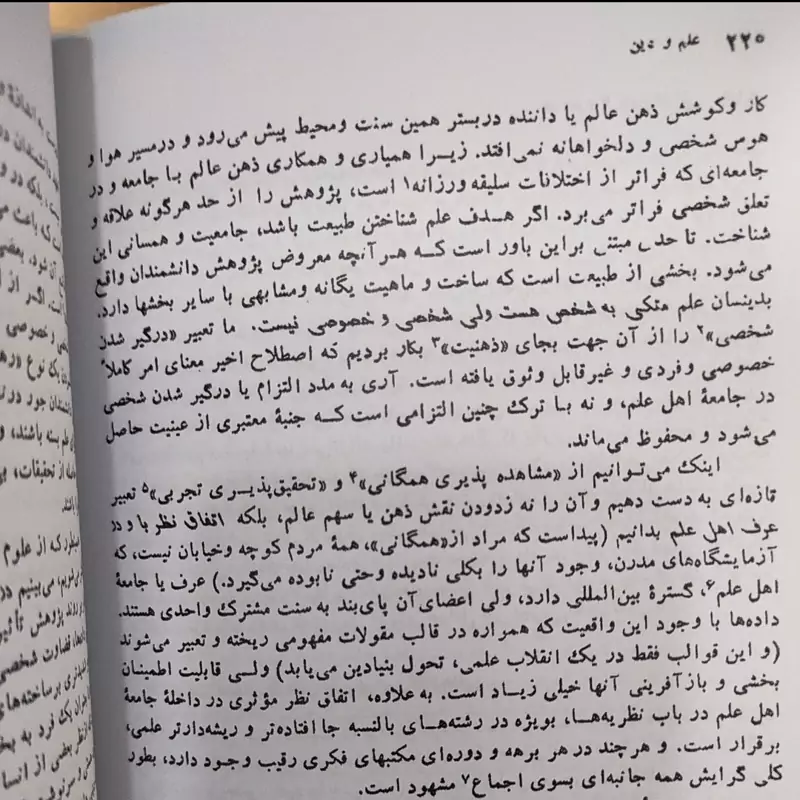 ۲۲۰ علم و دین
کار وکوشش ذهن عالم یا داننده دربستر همین سنت ومحیط پیش می‌رود و درمسیر هوا و
هوس شخصی و دلخواهانه نمی‌افتد. زیـرا همیاری و همکاری ذهن عالم بـا جامعه و در
جامعه‌ای که فراتر از اختلافات سلیقه ورزانه۱ است، پژوهش را از حد هرگونه علاقه و
تعلق شخصی فراتر می‌برد. اگر هـدف علم شناختن طبیعت باشد، جامعیت و همسانی این
شناخت. تا حدی مبتنی براین باور است کـه هـرآنچه معروض پژوهش دانشمندان واقع
می‌شود. بخشی از طبیعت است که ساخت و ماهیت یگانه ومشابهی با سایر بخشها دارد.
بدینسان علم متکی به شخص هست ولی شخصی و خصوصی نیست. ما تعبیر «درگیر شدن
شخصی»۲ را از آن جهت بجای «ذهنیت»۳ بکار بردیم که اصطلاح اخیر معنای امر کاملاً
خصوصی وفردی و غیرقابل وثوق یافته است. آری به مدد التزام یا درگیر شدن شخصی
در جامعهٔ اهل علم، و نه بـا ترک چنین التزامی است کـه جنبهٔ معتبری از عینیت حاصل
می‌شود و محفوظ می‌ماند.
اینک می‌تـوانیم از «مشاهده پذیری همگانی»۴ و «تحقیق‌پذیـری تجربی»۵ تعبیر
تازه‌ای به دست دهیم وآن را نه زدودن نقش ذهن یا سهم عالم، بلکه اتفاق نظر با و در
عرف اهل علم بدانیم (پیداست که مراد از«همگانی»، همهٔ مردم کوچه وخیابان نیست، که
آزمایشگاه‌های مدرن، وجود آنها را بکلی نادیده وحتی نابوده می‌گیرد.) عرف یا جامعهٔ
اهل علم۶، گسترهٔ بین‌المللی دارد، ولی اعضای‌آن پای‌بند به سنت مشترک واحدی هستند.
داده‌ها با وجود این واقعیت که همواره در قالب مقولات مفهومی ریخته و تعبیر می‌شوند
(و این قوالب فقط در یک انقلاب علمی، تحول بنیادین می‌یابد) ولـی قابلیت اطمینان
بخشی و بازآفرینی آنها خیلی زیـاد است. به علاوه، اتفاق نظر مؤثری در داخلهٔ جامعهٔ
اهل علم در باب نظریه‌هـا، بویژه در رشته‌هـای بالنسبه جا افتاده‌تر و ریشه‌دارتر علمی،
برقرار است. و هرچند در هر برهه و دوره‌ای مکتبهای فکری رقیب وجود دارد، بطور
کلی گرایش همه جانبه‌ای بسوی اجماع۷ مشهود است.